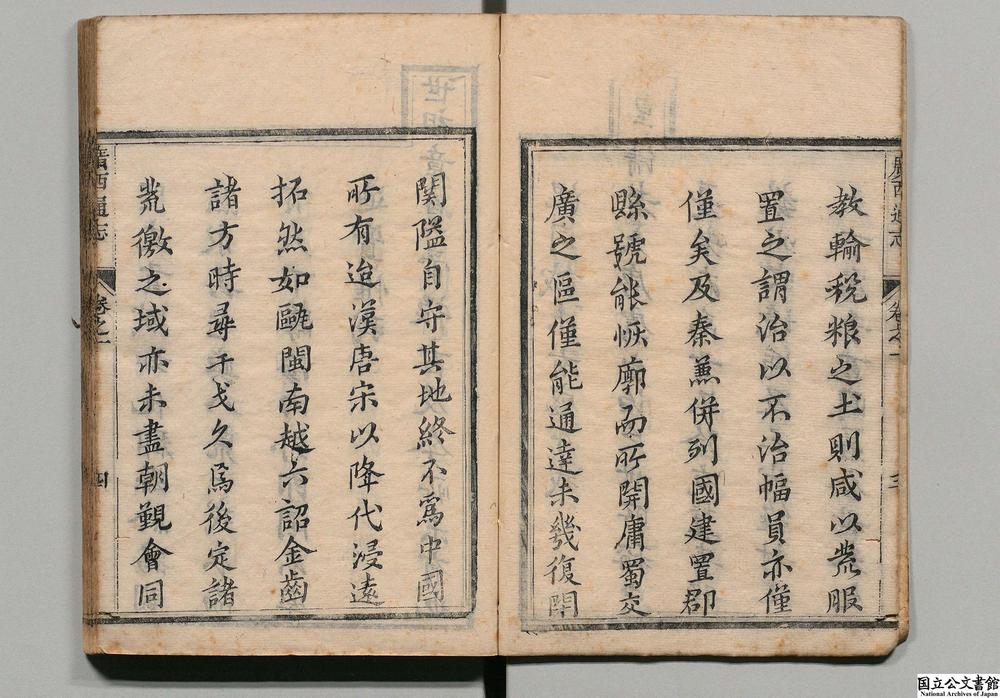 教輸税粮之土則咸以荒服
置之謂治以不治幅員亦僅
僅矣及秦蕪併列國建置郡
縣號能恢廓而所開庸蜀交
廣之區僅能通達未幾復閉
廣西通志
卷之一
三
関隘自守其地終不爲中國
所有迨漢唐宋以降代浸遠
拓然如甌閩南越六詔金齒
諸方時尋干戈久爲後定諸
荒徼之域亦未盡朝覲會同
廣西通志
卷之一
四
国立公文書館
National Archives of Japan